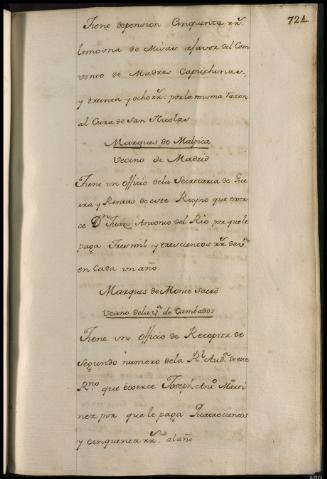 724
Tiene de pension Cinquenta rr.^s
limosna de Misas a favor del Com
vento de Madres Capuchinas,
y treinta y ocho rr.^s por la misma razon
al Cura de San Nicolas
Marques de Malpica
Vecino de Madrid
Tiene un officio de la Secretaria de Gue
rra y Rentas de este Reyno que exer
ce D.^n Antonio del Rio por que le
paga tres mil y trescientos rr.^s de v.^n
en cada un año
Marques de Monte Sacro
Vecino de la v.^a de Cambados
Tiene un officio de Receptor de
segundo numero de la R.^l Aud.^a de este
R.^no que exerce Joseph Ant.^o Marti
nez por que le paga Quatrocientos
y cinquenta rr.^s al año